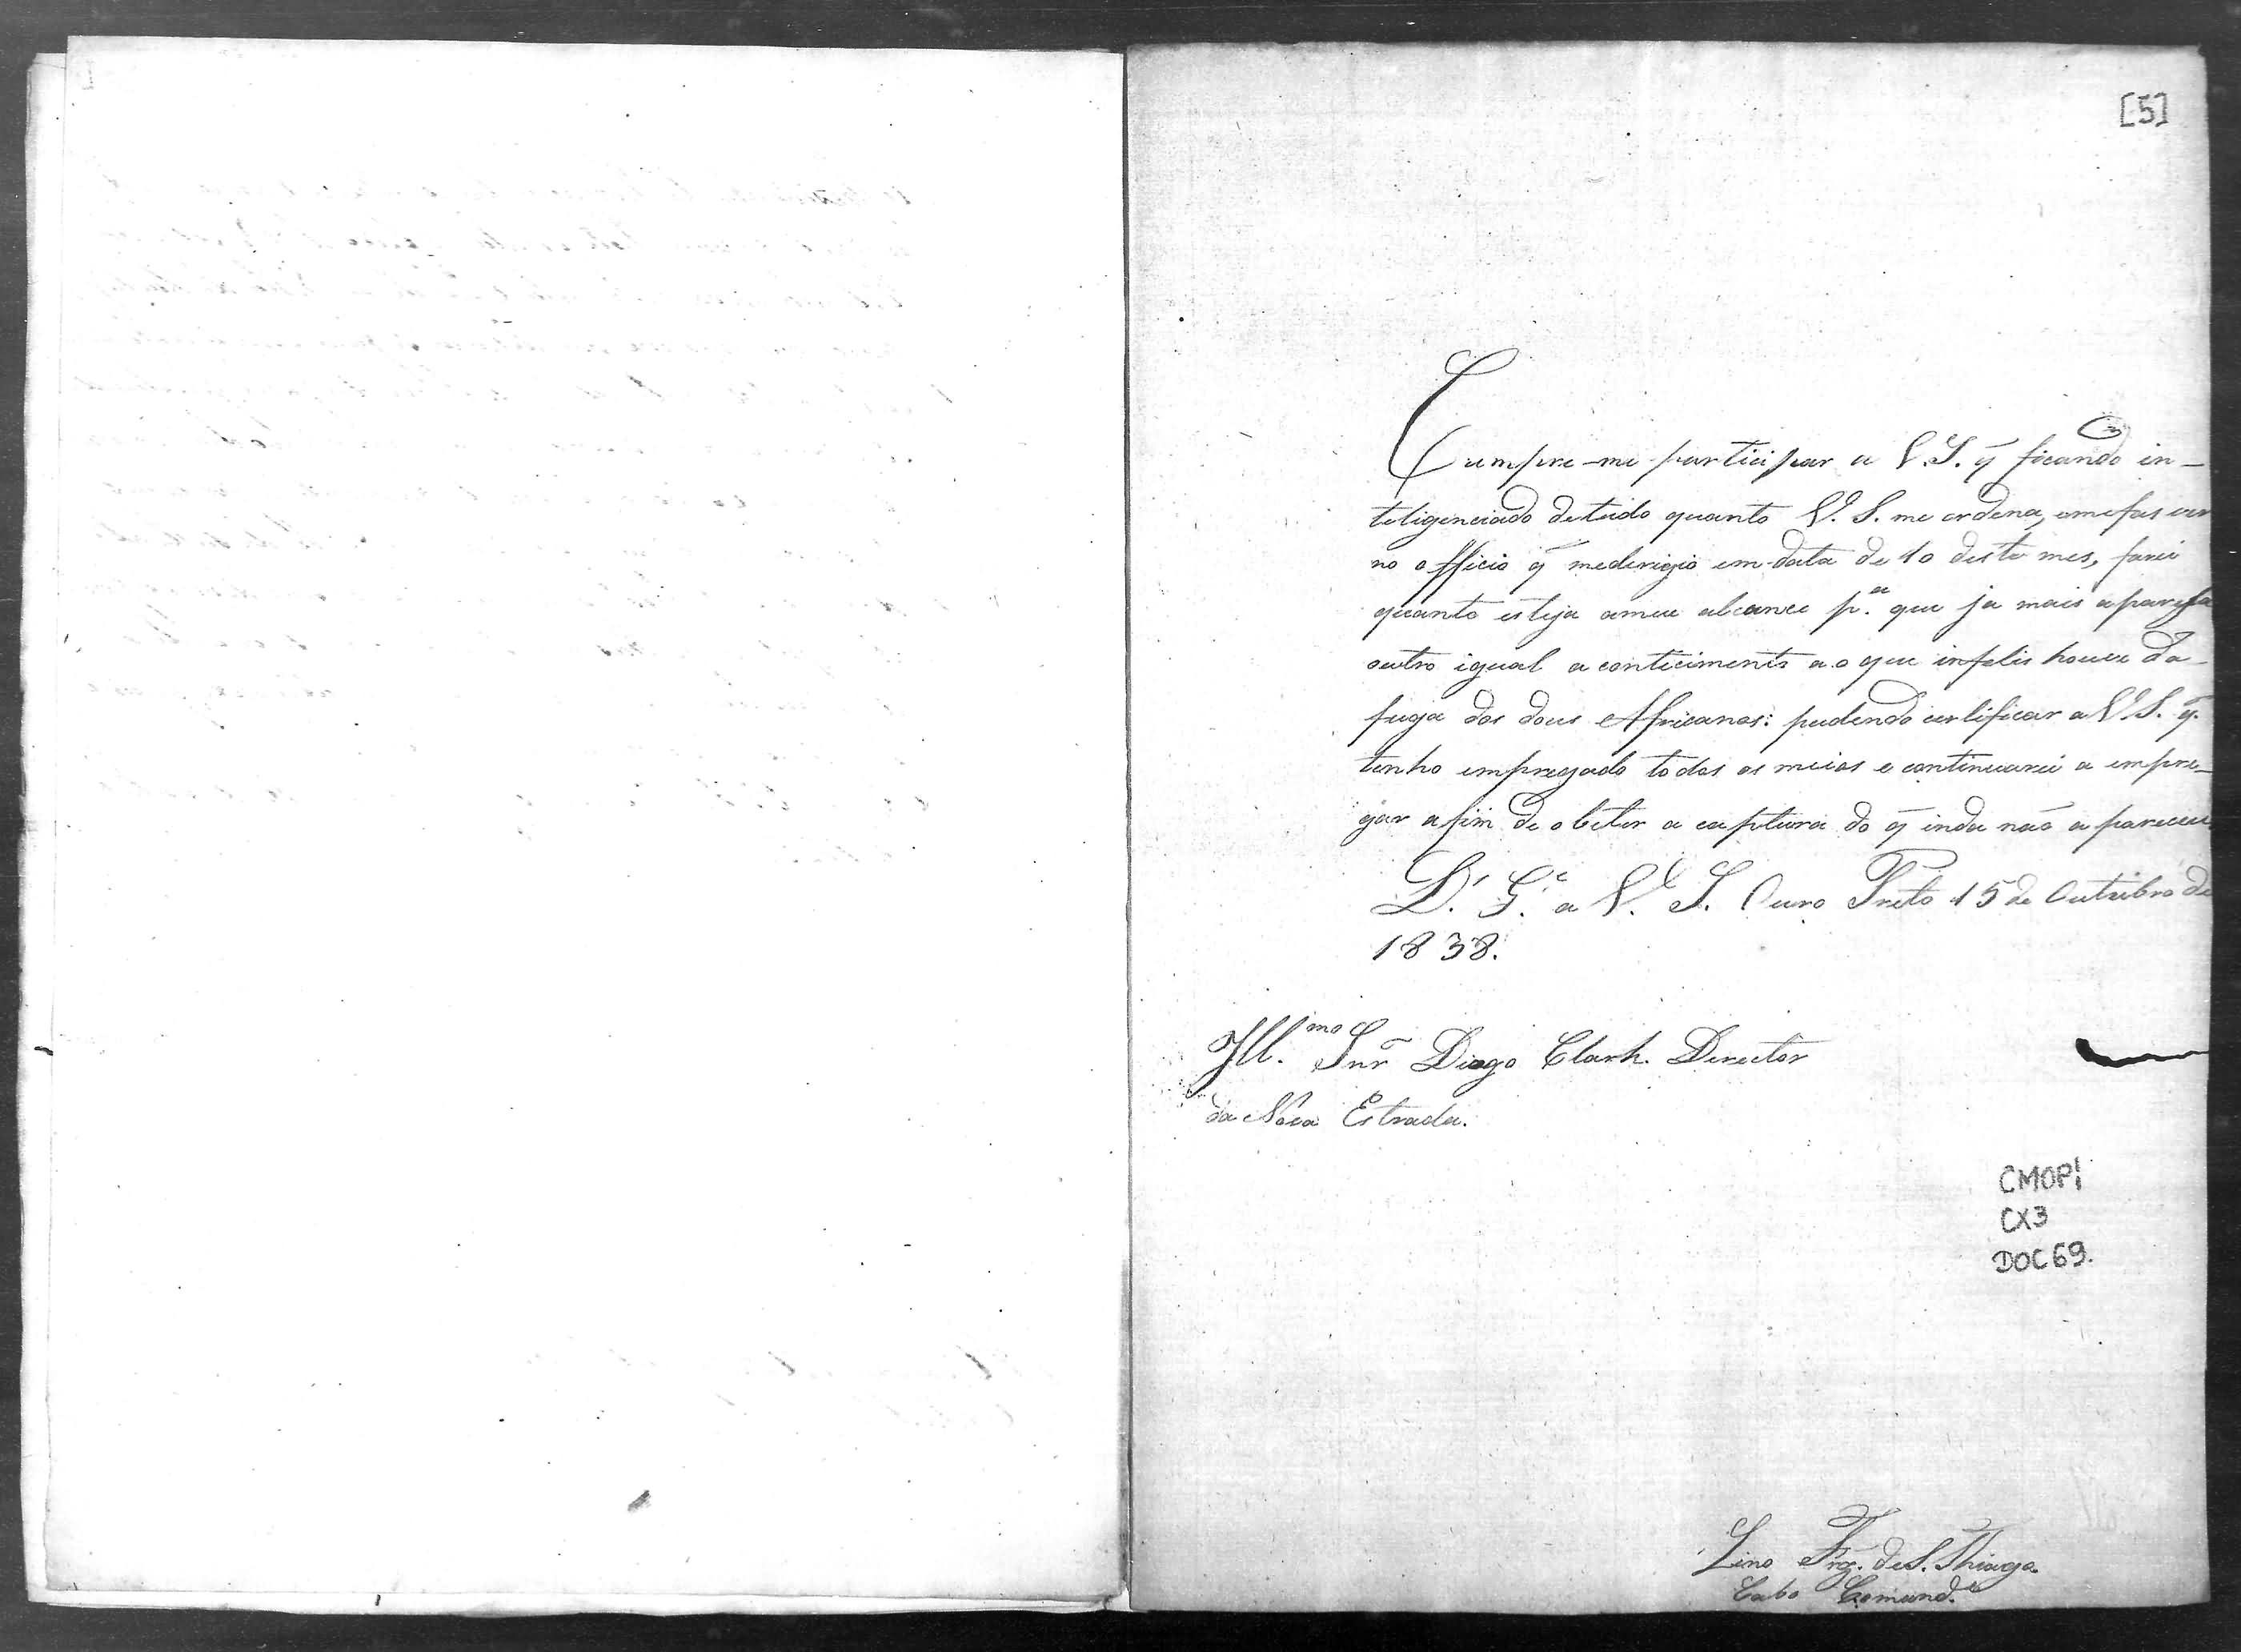 [5]
Cumpre-me participar a V.S. q̃ ficando in-
teligenciado detudo quanto V. S. me ordena, emefas ver
no officio q̃ mederigio em data de 10 deste mes, farei
quanto esteja ameu alcance p.ª que ja mais apareça
outro igual a contecimento ao que infelis houve da
fuga dos dous Africanos: pudendo certificar a V.S. q̃
tenho empregado todos os meios e continuarei a empre-
gar afim de obter a captura do q̃ inda não a pareceu
D.s G.e a V. S. Ouro Preto 15 de Outubro de
1838.
Ill.mo Snr Diogo Clark. Director
da Nova Estrada.
CMOP
CX3
DOC69.
Lino Frz. de S. Thiago
Cabo Comand.e